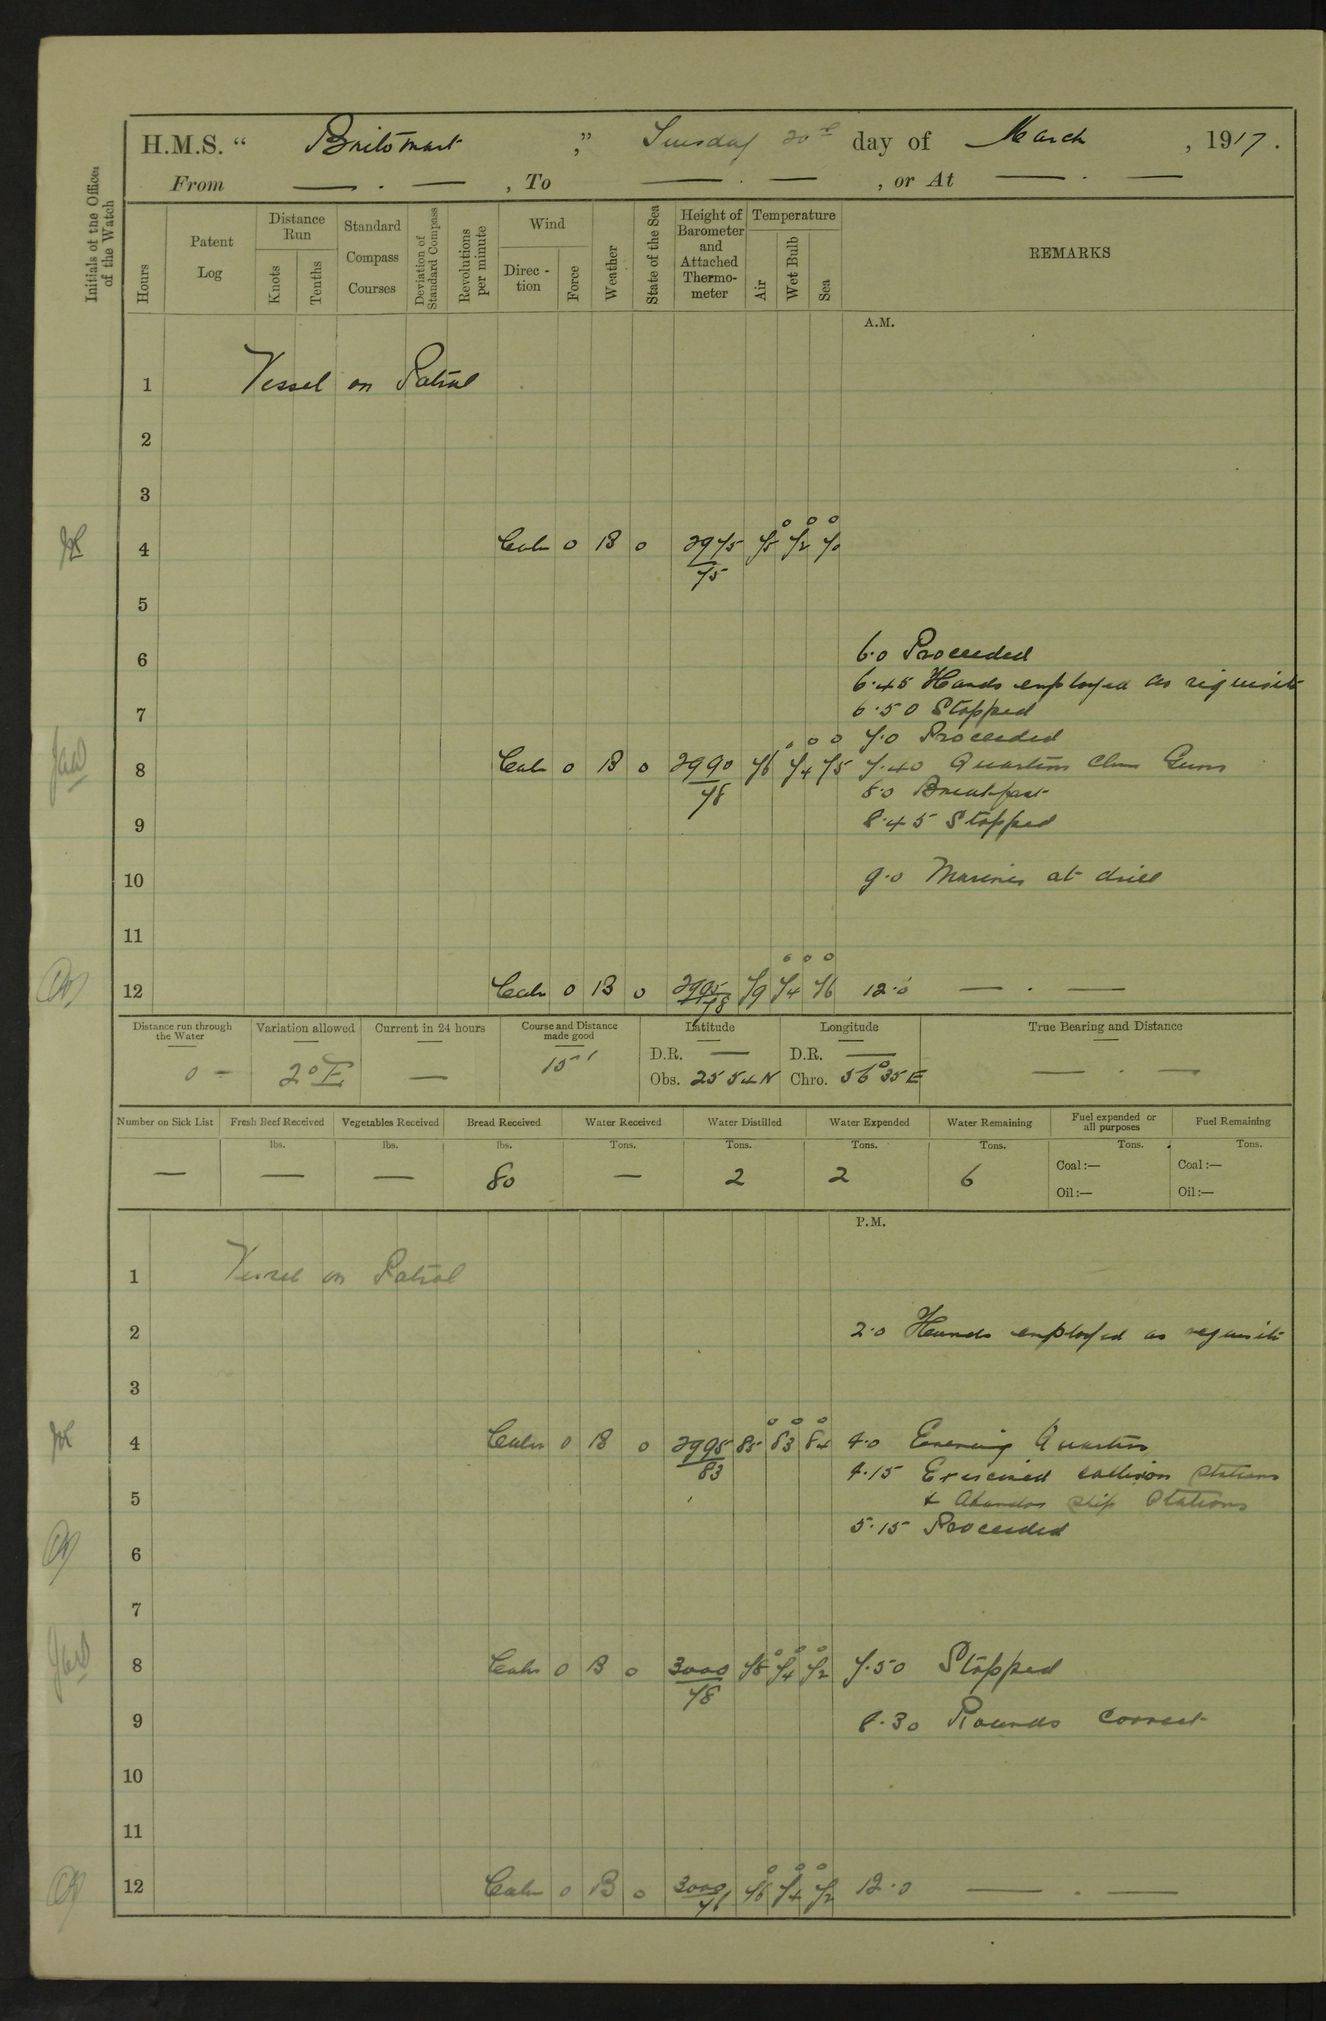 H.M.S. “ Britomart ,” Tuesday 20th day of March , 1917.
From — . — , To — . — , or At — . —
Initials of the Officer of the Watch
Hours
Patent Log
Distance Run
Knots
Tenths
Standard Compass Courses
Deviation of Standard Compass
Revolutions per minute
Wind
Direc-tion
Force
Weather
State of the Sea
Height of Barometer and Attached Thermo-meter
Temperature
Air
Wet Bulb
Sea
REMARKS
A.M.
1 Vessel on Patrol
2
3
4 Calm 0 B 0 2975/75 75 72 70
5
6 6.0 Proceeded
6.45 Hands employed as requisite
7 6.50 Stopped
7.0 Proceeded
8 Calm 0 B 0 2990/78 76 74 75 7.40 Quarters clean Guns
8.0 Breakfast
9 8.45 Stopped
10 9.0 Marines at drill
11
12 Calm 0 B 0 2995/78 79 74 76 12.0 — . —
Distance run through the Water
Variation allowed
Current in 24 hours
Course and Distance made good
Latitude
Longitude
True Bearing and Distance
0 – 2° E — 15' D.R. — D.R. — — . —
Obs. 25 54 N Chro. 56° 35 E
Number on Sick List Fresh Beef Received Vegetables Received Bread Received Water Received Water Distilled Water Expended Water Remaining Fuel expended or all purposes Fuel Remaining
lbs. lbs. lbs. Tons. Tons. Tons. Tons. Tons. Tons.
— — — 80 — 2 2 6 Coal :— Coal :—
Oil :— Oil :—
P.M.
1 Vessel on Patrol
2 2.0 Hands employed as requisite
3
4 Calm 0 B 0 2995/83 85 83 84 4.0 Evening Quarters
4.15 Exercised collision stations
5 & Abandon ship Stations
5.15 Proceeded
6
7
8 Calm 0 B 0 3000/78 78 74 72 7.50 Stopped
9 8.30 Rounds correct
10
11
12 Calm 0 B 0 3000/76 76 74 72 12.0 — . —